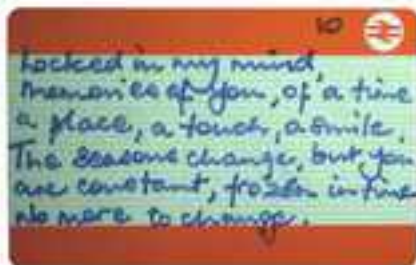 10
Locked in my mind,
memories of you, of a time
a place, a touch, a smile.
The seasons change, but you
are constant, frozen in time
no more to change.